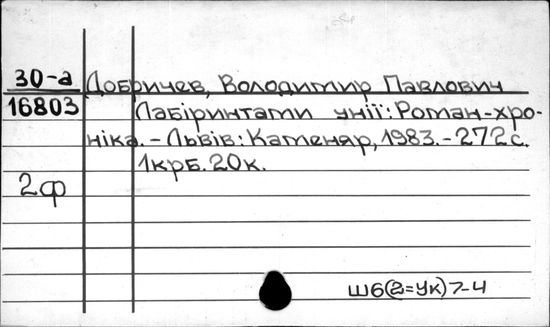 30-а Добричев, Володимир Павлович
16803 Лабіринтами унії: Роман-хро-
ніка. - Львів: Каменяр, 1983. - 272 с.
1крб. 20к.
2ф
Ш6(2=Ук)7-4